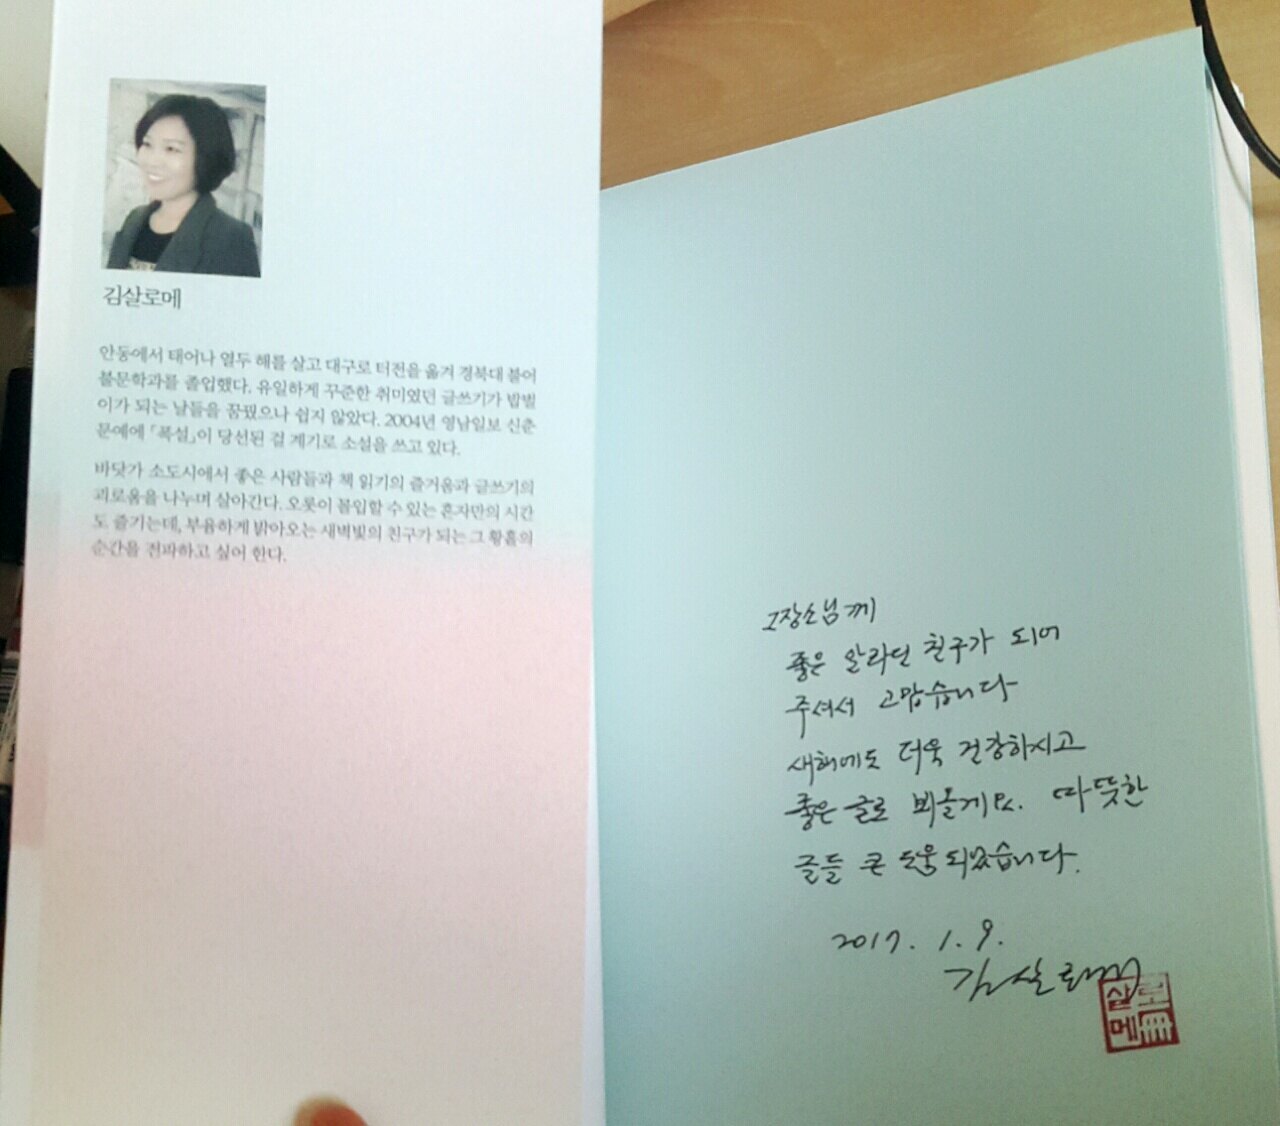 김살로메
안동에서 태어나 열두 해를 살고 대구로 터전을 옮겨 경북대 불어
불문학과를 졸업했다. 유일하게 꾸준한 취미였던 글쓰기가 밥벌
이가 되는 날들을 꿈꿨으나 쉽지 않았다. 2004년 영남일보 신춘
문예에 「폭설」이 당선된 걸 계기로 소설을 쓰고 있다.
바닷가 소도시에서 좋은 사람들과 책 읽기의 즐거움과 글쓰기의
괴로움을 나누며 살아간다. 오롯이 몰입할 수 있는 혼자만의 시간
도 즐기는데, 부윰하게 밝아오는 새벽빛의 친구가 되는 그 황홀의
순간을 전파하고 싶어 한다.
고장소님께
좋은 알라딘 친구가 되어
주셔서 고맙습니다
새해에도 더욱 건강하시고
좋은 글로 뵈올게요. 따뜻한
글들 큰 도움 되었습니다.
2017. 1. 9.
김살로메
살
메